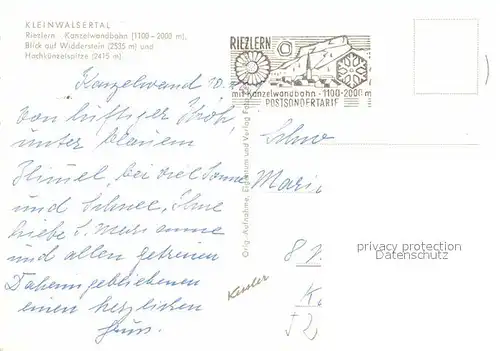 KLEINWALSERTAL
Riezlern Kanzelwandbahn (1100-2000 m),
Blick auf Widderstein (2535 m) und
Hochkünzelspitze (2415 m)
RIEZLERN
mit Kanzelwandbahn - 1100-2000 m
POSTSONDERTARIF
Kanzelwand
von luftiger Höh,
unter blauem
Himmel bei viel Sonne
und Schnee, Ihne
liebe S. Marianne
und allen getreuen
Daheimgebliebenen
einen herzlichen
Gruss.
Kessler
Orig.-Aufnahme, Eigentum und Verlag Foto
Schw
Mari
8
K
privacy protection
Datenschutz